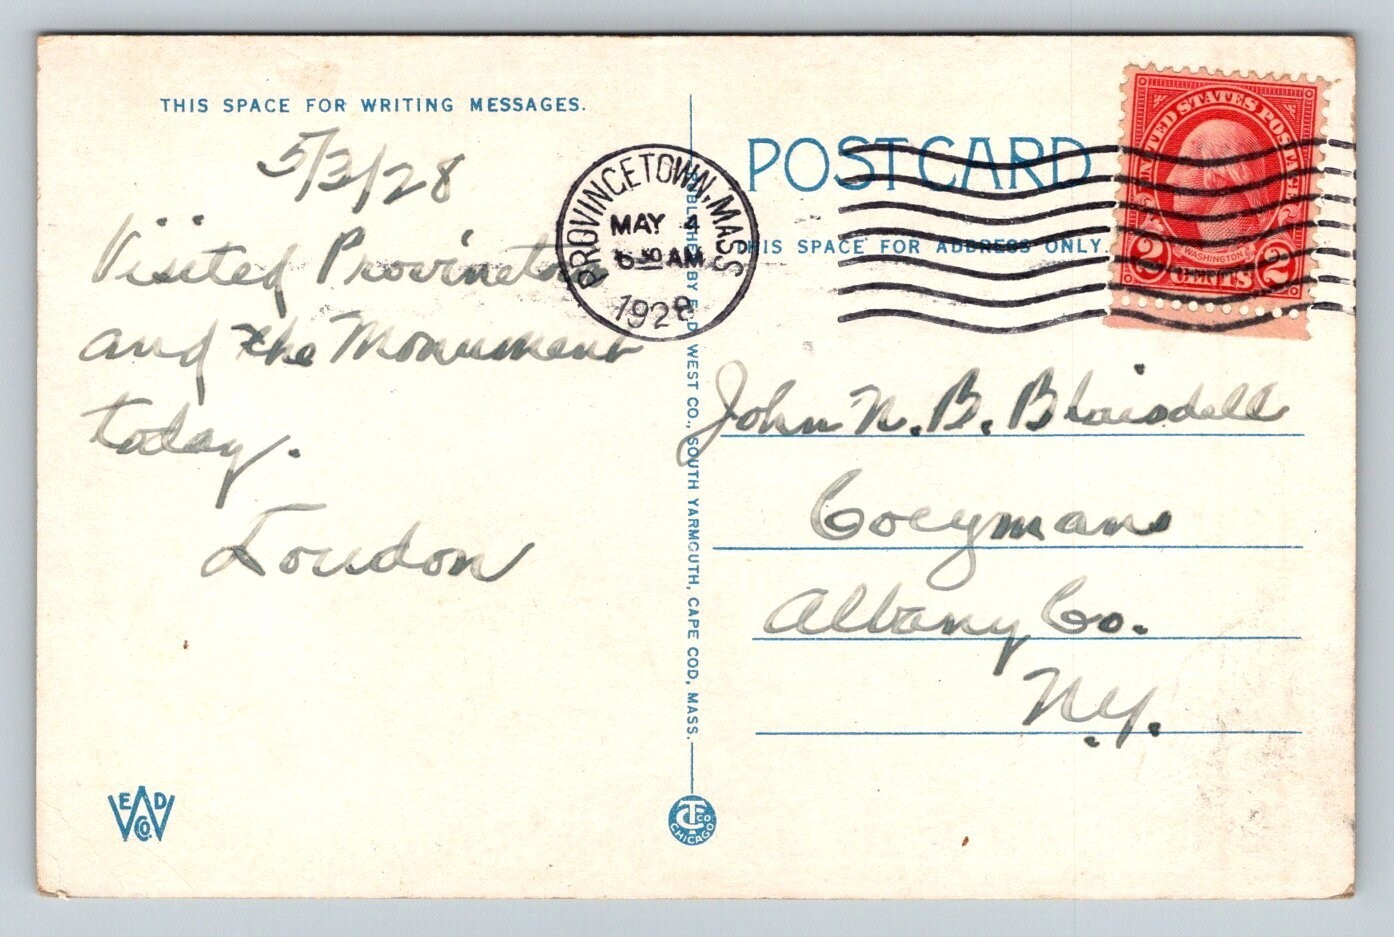 THIS SPACE FOR WRITING MESSAGES.
5/3/28
Visited Provincetown
and the Monument
today.
Loudon
PROVINCETOWN, MASS
MAY 4
6 30 AM
1928
PUBLISHED BY E. D. WEST CO., SOUTH YARMOUTH, CAPE COD, MASS.
POST CARD
THIS SPACE FOR ADDRESS ONLY.
UNITED STATES POSTAGE
WASHINGTON
2 CENTS 2
John N. B. Blaisdell
Coeymans
Albany Co.
N.Y.
E D W CO.
C T CO. CHICAGO